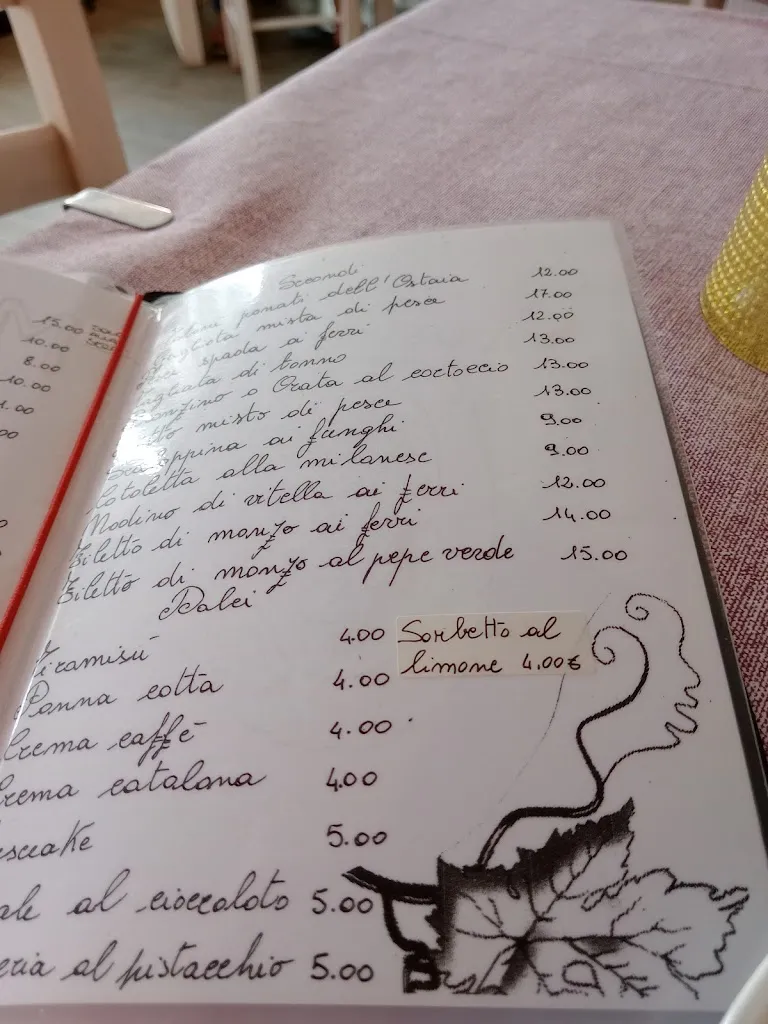 15.00
10.00
8.00
10.00
Secondi
panati dell'Ostaia 12.00
mista di pesce 17.00
spada ai ferri 12.00
di tonno 13.00
o Orata al cartoccio 13.00
misto di pesce 13.00
ai funghi 9.00
Cotoletta alla milanese 9.00
Nodino di vitella ai ferri 12.00
Filetto di manzo ai ferri 14.00
Filetto di manzo al pepe verde 15.00
Dolci
Tiramisù 4.00
Sorbetto al
limone 4.00€
Panna cotta 4.00
Crema caffè 4.00
Crema catalana 4.00
5.00
al cioccolato 5.00
al pistacchio 5.00